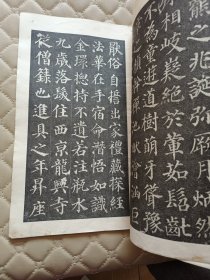 熊之兆誕彌厥月炳然
殊相岐嶷絕於葷茹髫齔
不為童遊道樹萌牙聳豫
畎澮涵巨
厭俗自誓出家禮藏探經
法華在手宿命潛悟如識
金環揔持不遺若注瓶水
九歲落髮住西京龍興寺
從僧籙也進具之年昇座